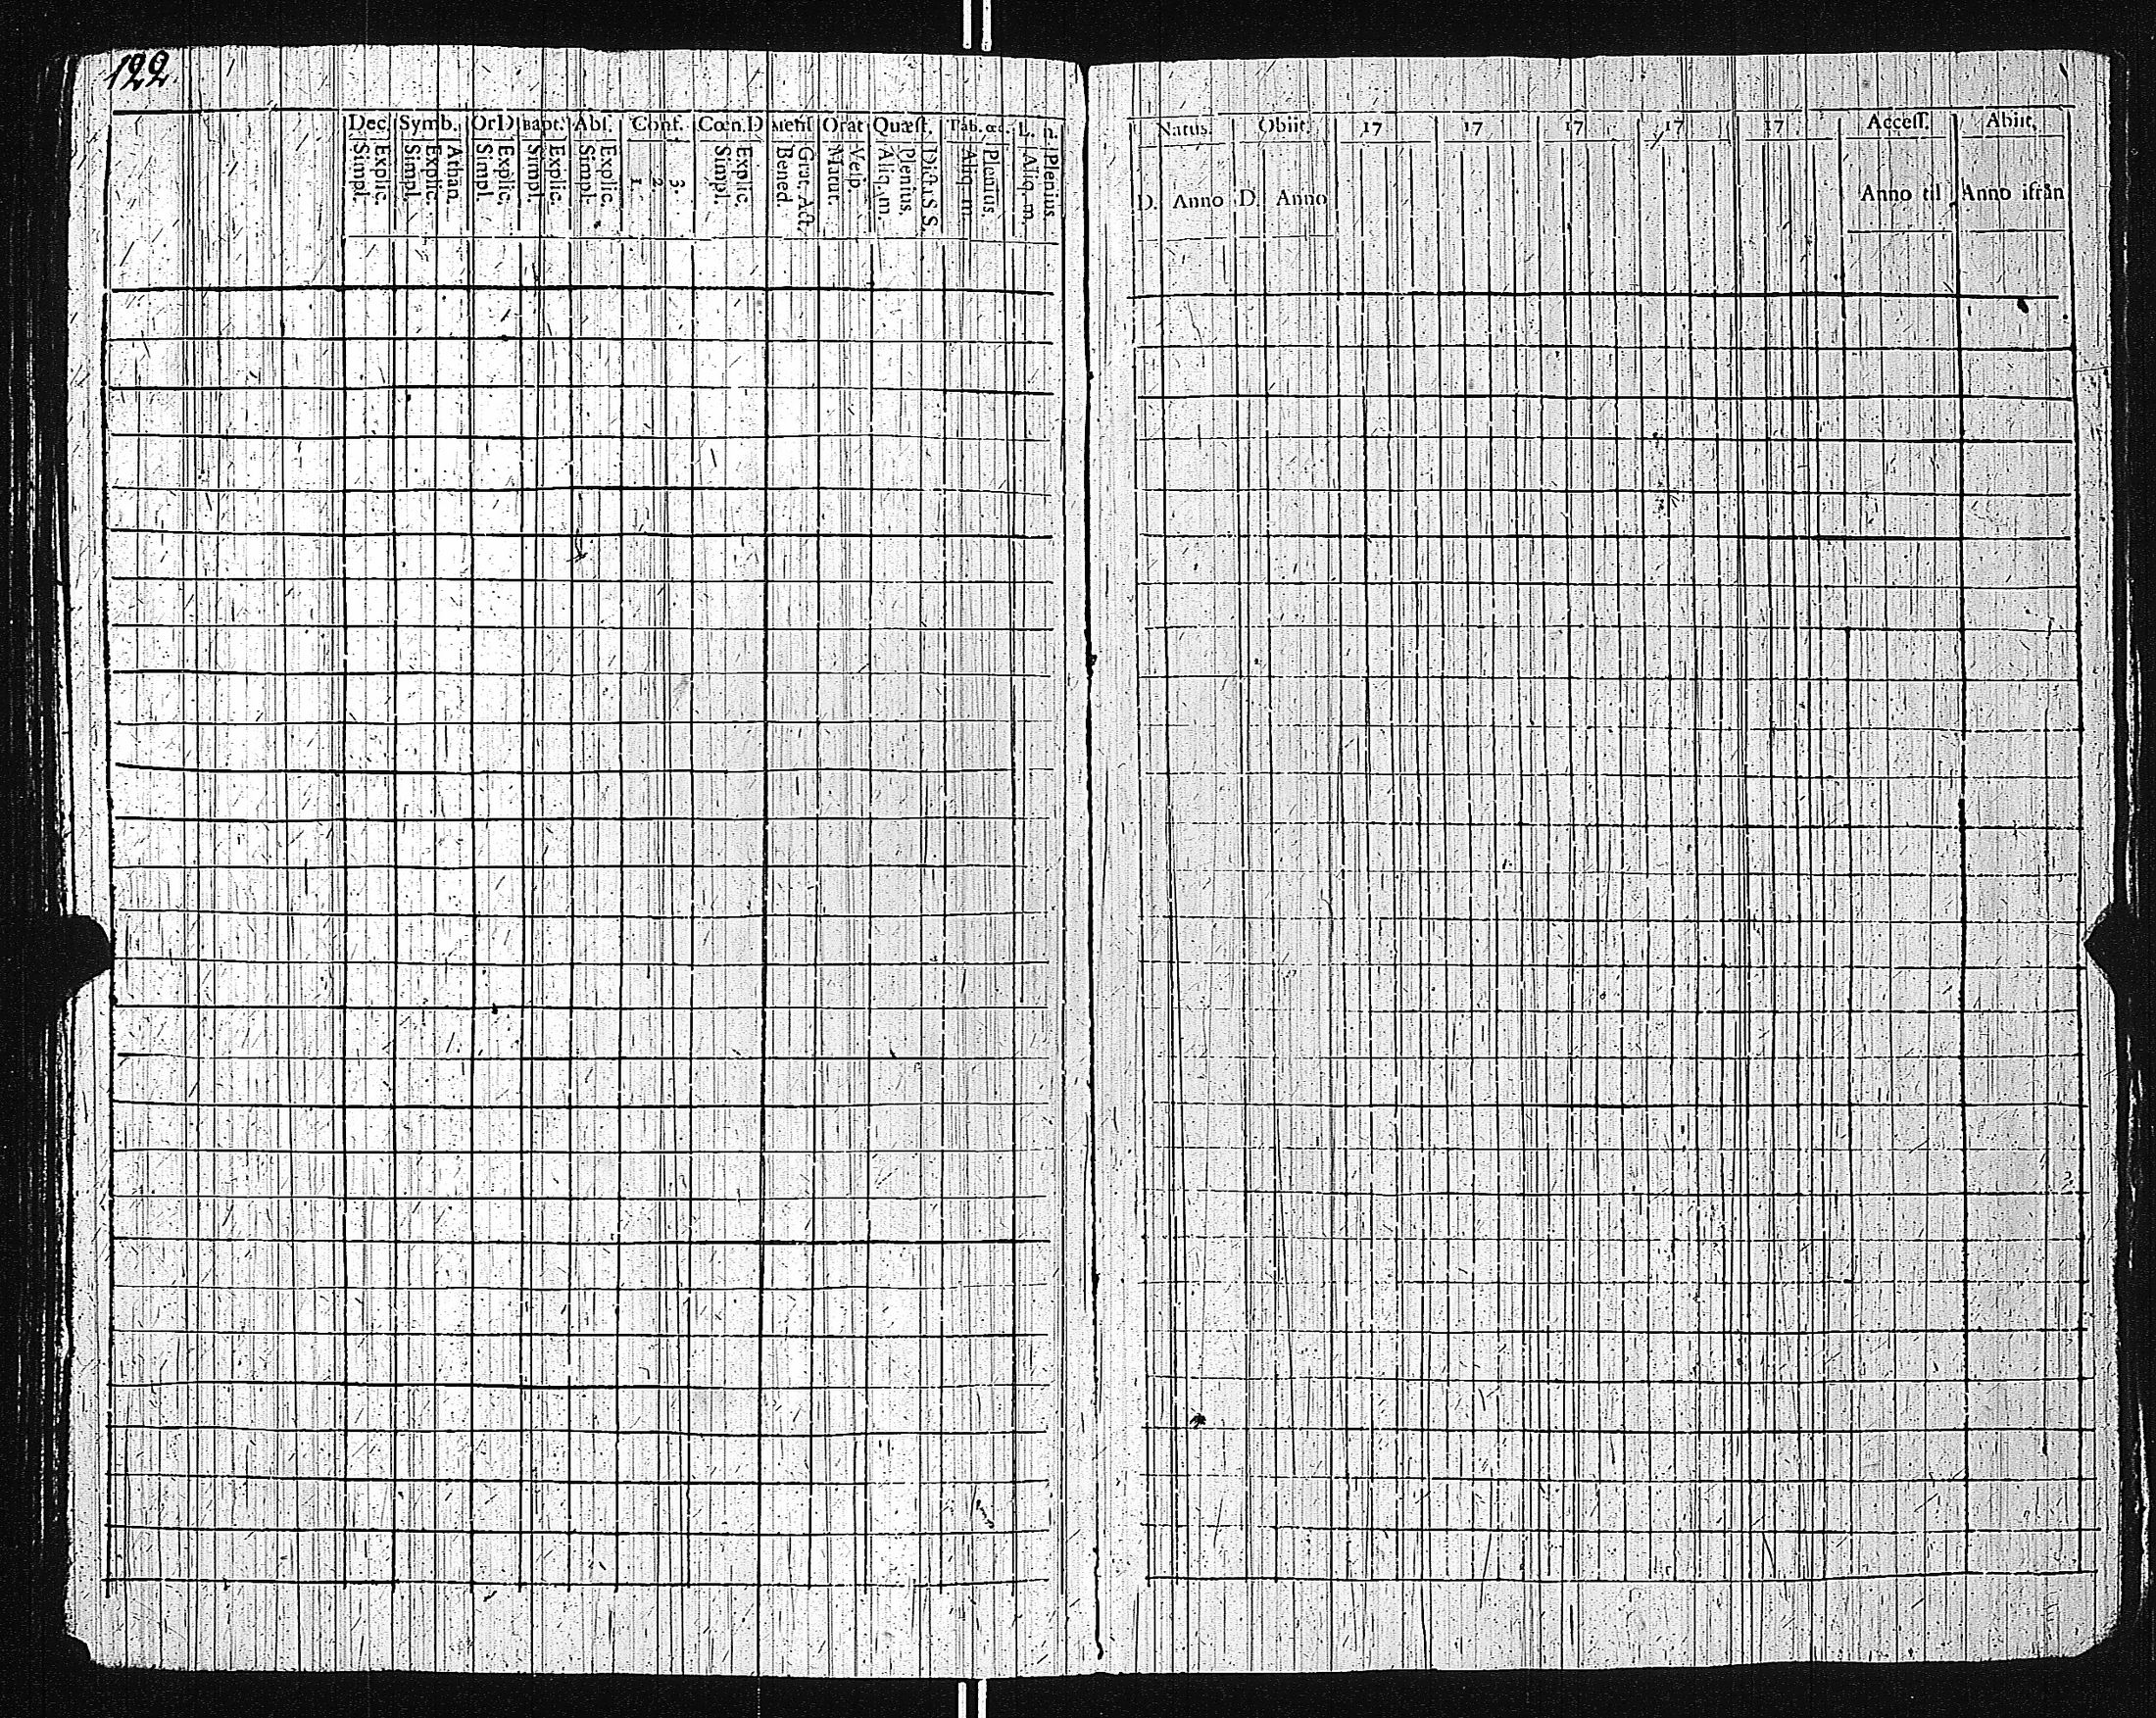 122
Dec. Symb. Or D Bapt. Abſ. Conf. Cœn. D Menſ Orat Quæſt. Tab. œc. L. n.
Simpl. Explic. Simpl. Explic. Athan. Simpl. Explic. Simpl. Explic. Simpl. Explic. 1. 2. 3. Simpl. Explic. Bened. Grat. Act. Matut. Veſp. Aliq. m. Plenius. Dicta S. S. Aliq. m. Plenius. Aliq. m. Plenius.
Natus. Obiit. 17 17 17 17 17 Acceſſ. Abiit.
D. Anno D. Anno Anno til Anno ifrån